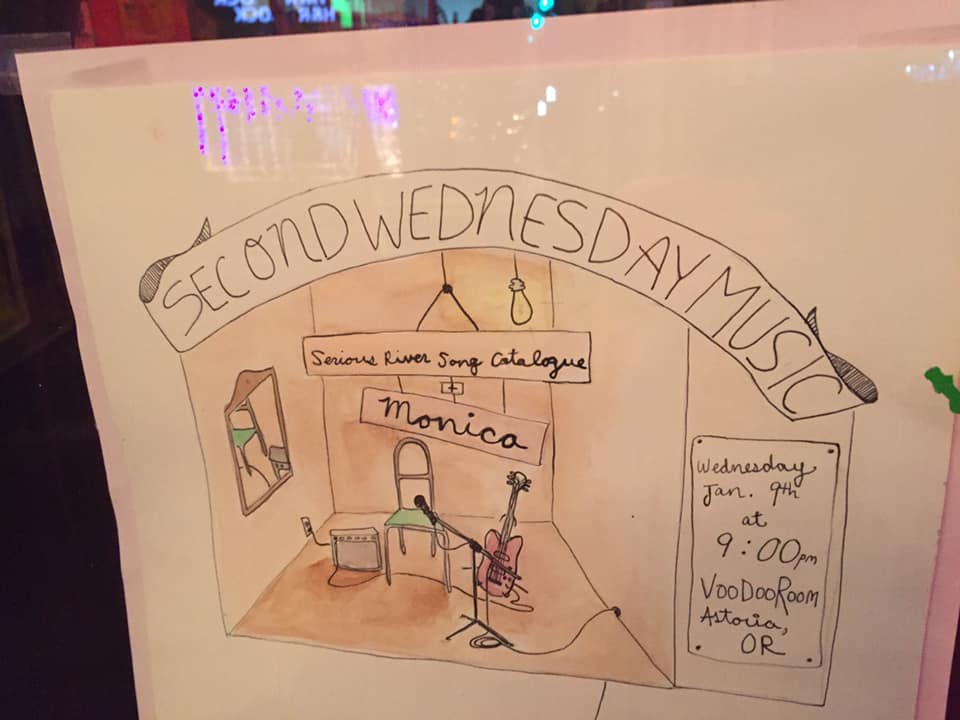 SECOND WEDNESDAY MUSIC
Serious River Song Catalogue
+
Monica
Wednesday
Jan. 9th
at
9:00pm
VooDooRoom
Astoria,
OR